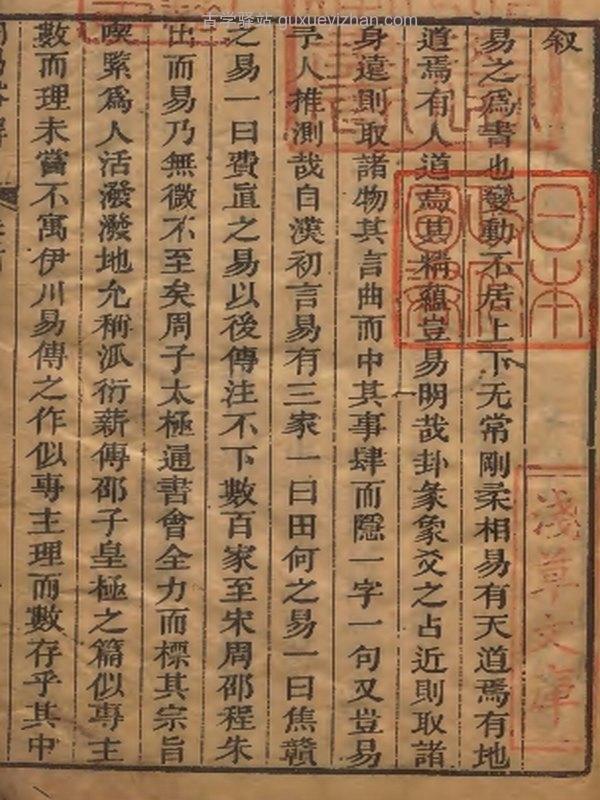 古学驿站 guxueyizhan.com
叙
易之爲書也變動不居上下无常剛柔相易有天道焉有地
道焉有人道焉其精蘊豈易明哉卦彖象爻之占近則取諸
身遠則取諸物其言曲而中其事肆而隱一字一句又豈易
予人推測哉自漢初言易有三家一曰田何之易一曰焦贛
之易一曰費直之易以後傳注不下數百家至宋周邵程朱
出而易乃無微不至矣周子太極通書會全力而標其宗旨
喫緊爲人活潑潑地允稱派衍薪傳邵子皇極之篇似專主
數而理未嘗不寓伊川易傳之作似專主理而數存乎其中
淺草文庫